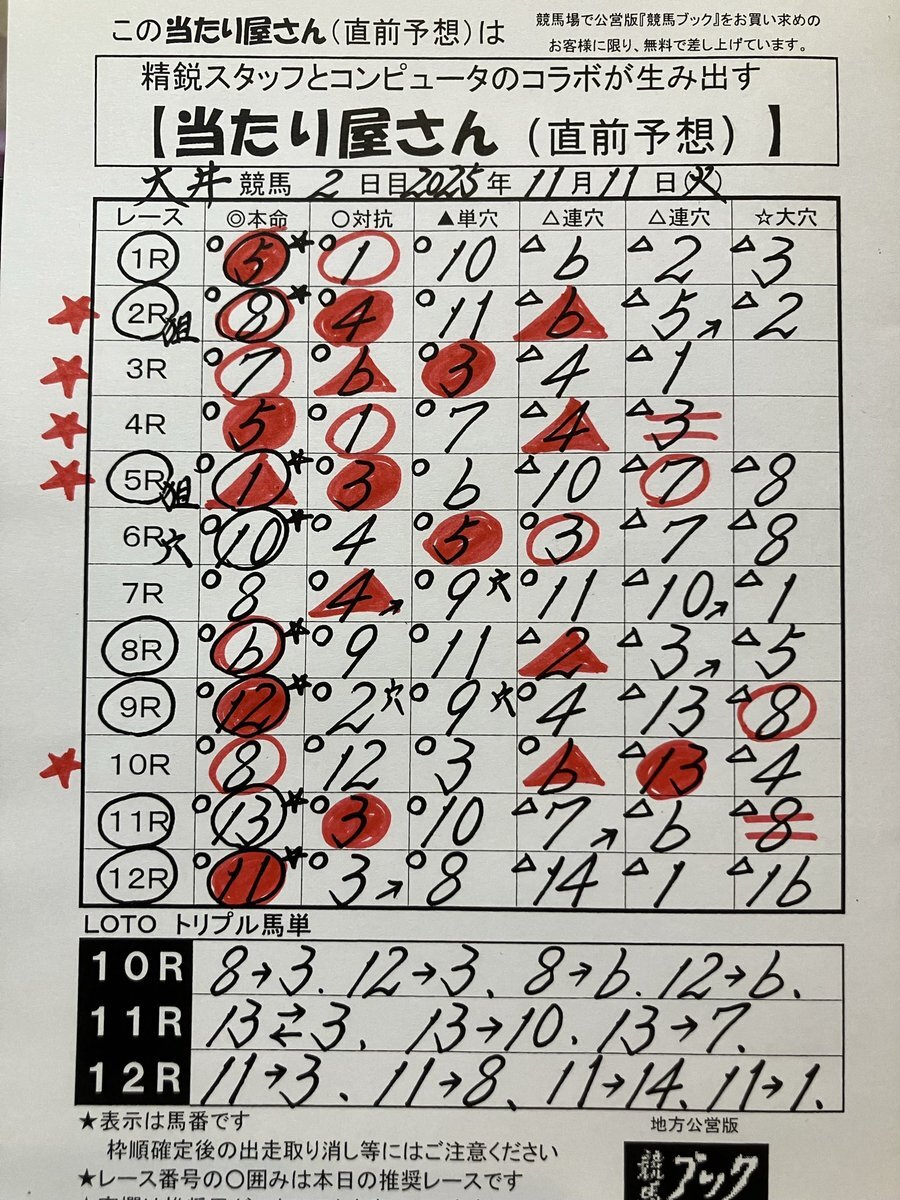 この当たり屋さん（直前予想）は
競馬場で公営版『競馬ブック』をお買い求めの
お客様に限り、無料で差し上げています。
精鋭スタッフとコンピュータのコラボが生み出す
【当たり屋さん（直前予想）】
大井 競馬 2 日目 2025 年 11 月 11 日 火
レース ◎本命 ○対抗 ▲単穴 △連穴 △連穴 ☆大穴
1R ○5★ ○1 ○10 △6 △2 △3
★ 2R狙 ○8★ ○4 ○11 △6 △5↗ △2
★ 3R ○7 ○6 ○3 △4 △1
★ 4R ○5 ○1 ○7 △4 △3
★ 5R狙 ○1★ ○3 ○6 △10 △7 △8
6R穴 ○10★ ○4 ○5 ○3 △7 △8
7R ○8 ○4↗ ○9穴 ○11 △10↗ △1
8R ○6★ ○9 ○11 △2 △3↗ △5
9R ○12★ ○2穴 ○9穴 ○4 △13 △8
★ 10R ○8 ○12 ○3 ○6 △13 △4
11R ○13★ ○3 ○10 △7↗ △6 △8
12R ○11★ ○3↗ ○8 △14 △1 △16
LOTO トリプル馬単
10R 8→3. 12→3、 8→6. 12→6、
11R 13⇄3、 13→10、 13→7、
12R 11→3、 11→8、 11→14、 11→1、
★表示は馬番です
枠順確定後の出走取り消し等にはご注意ください
★レース番号の○囲みは本日の推奨レースです
地方公営版
競馬ブック